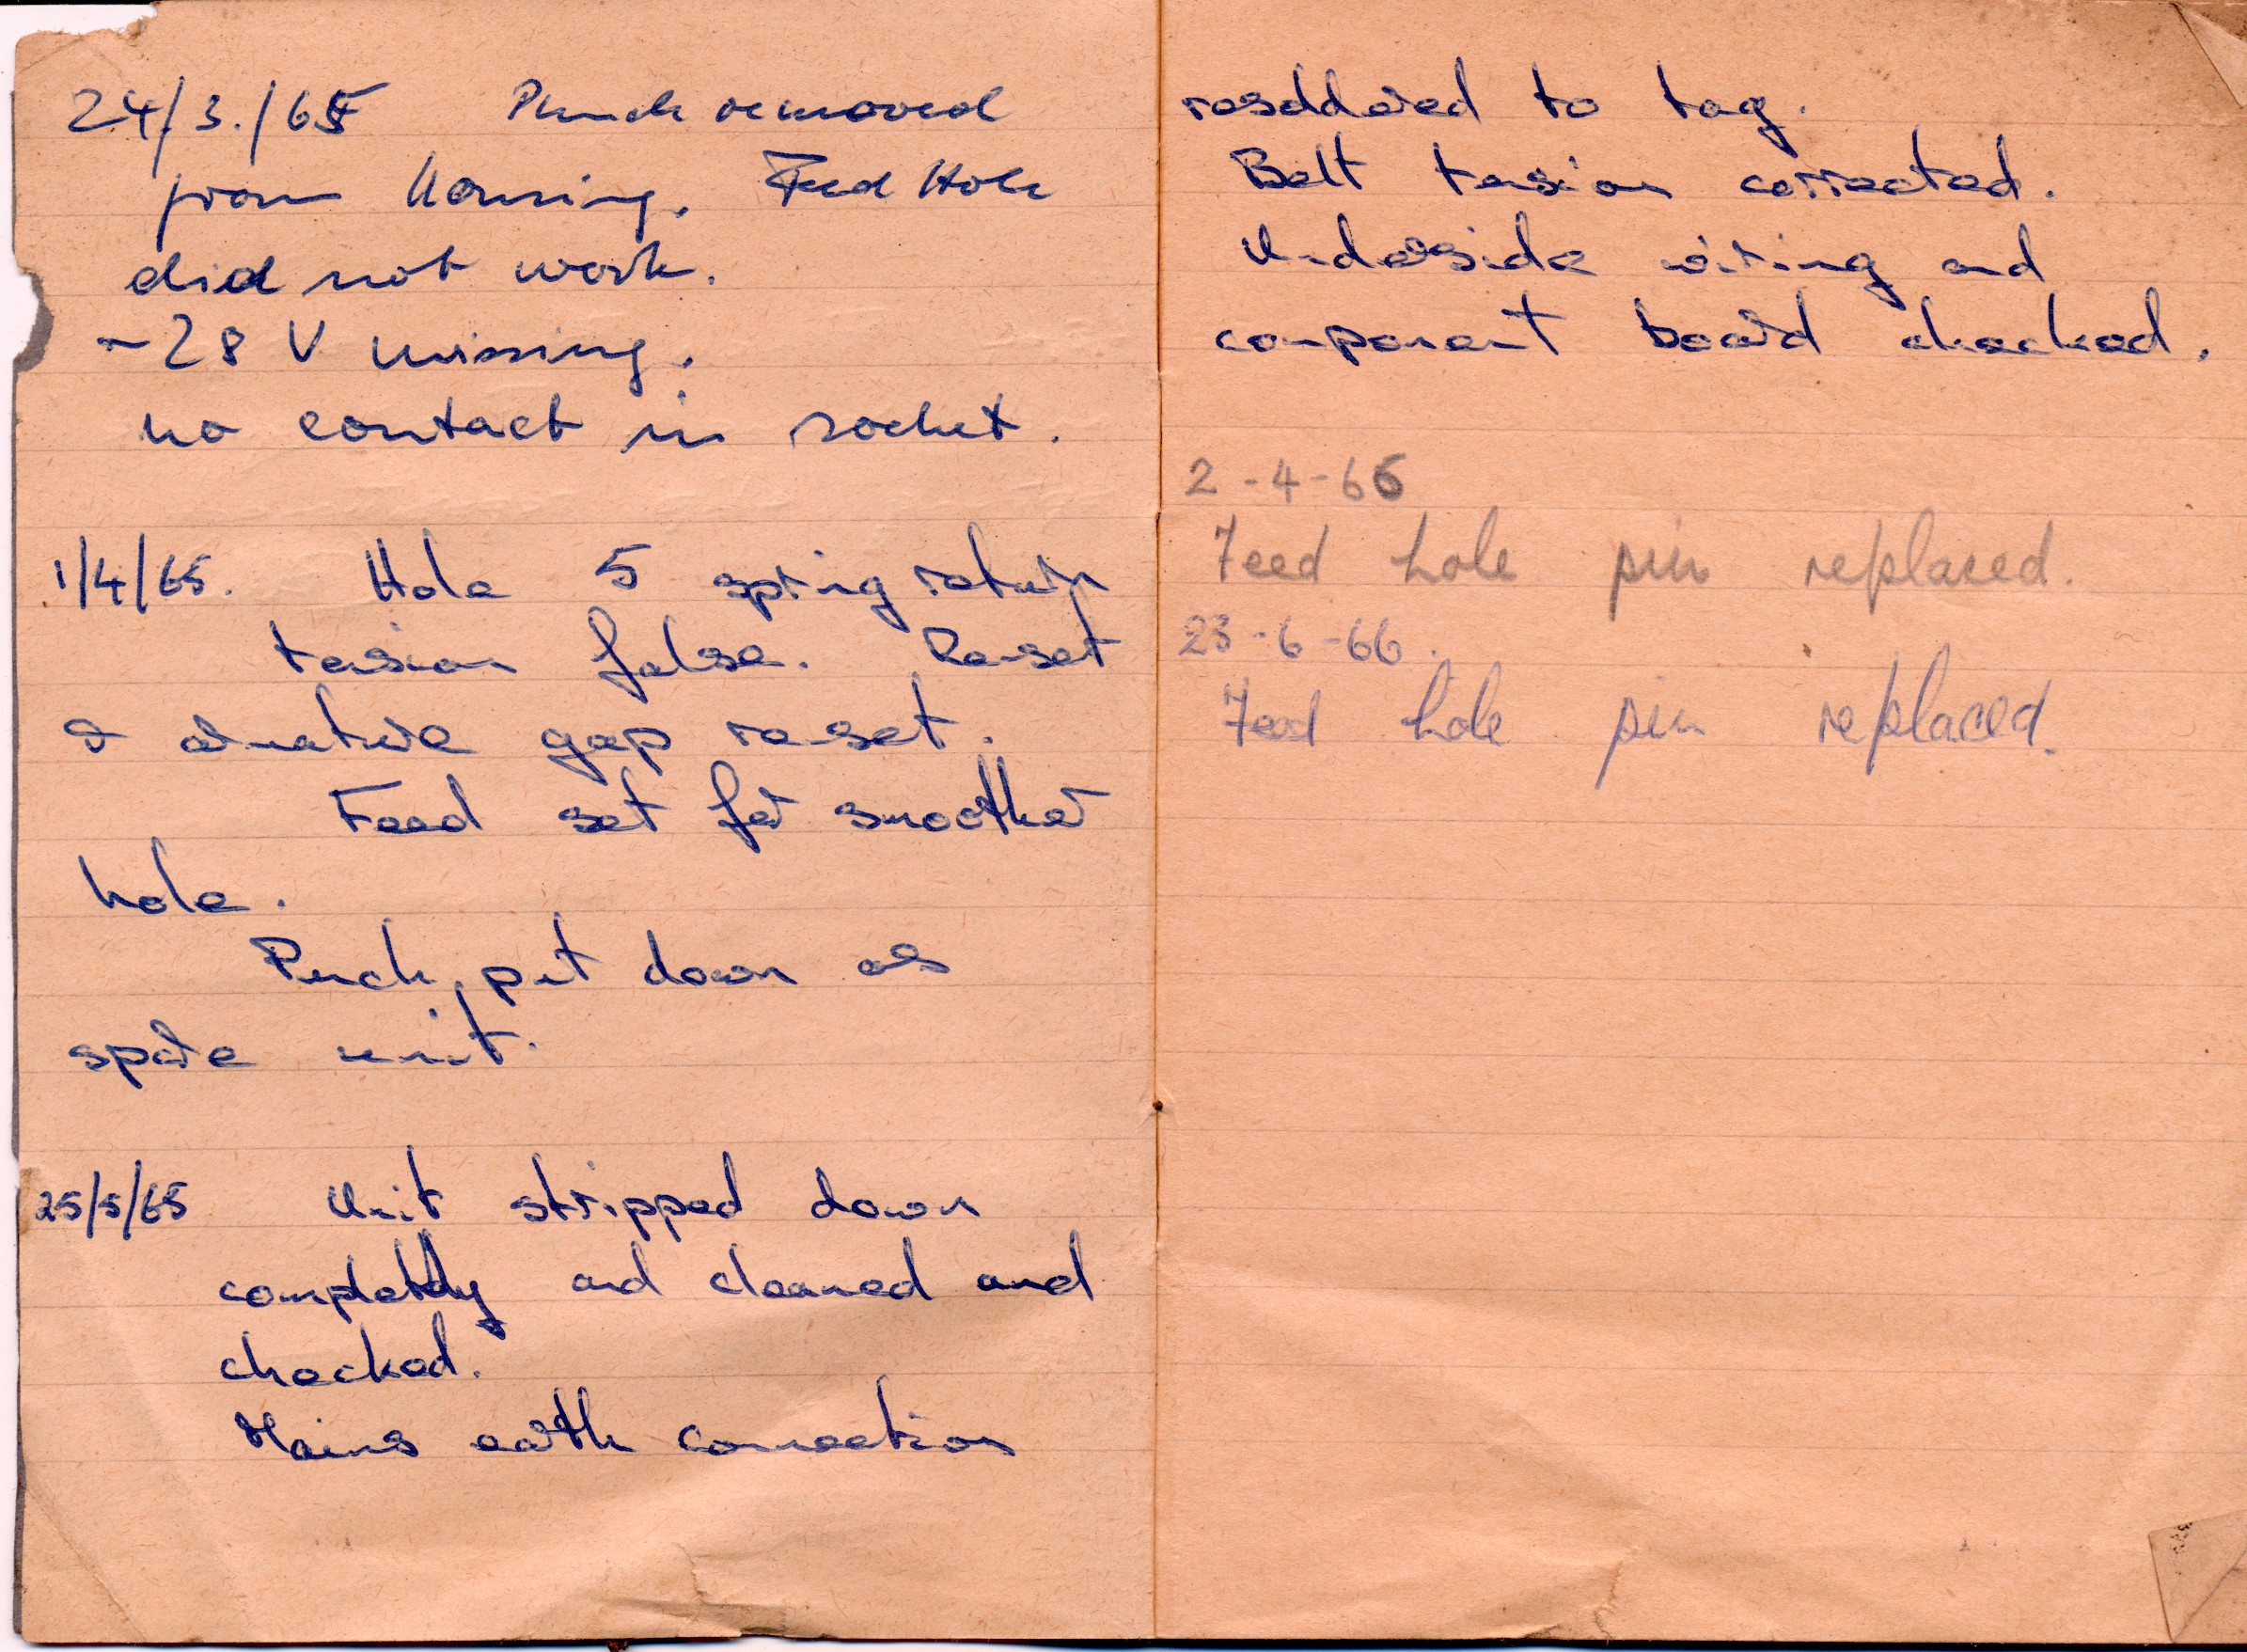 24/3./65 Punch removed
from housing. Feed Hole
did not work.
-28 V missing.
no contact in socket.
1/4/65. Hole 5 spring return
tension false. Re-set
& armature gap re-set.
Feed set for smoother
hole.
Punch put down as
spare unit.
25/5/65 Unit stripped down
completely and cleaned and
checked.
Mains earth connection
resoldered to tag.
Belt tension corrected.
Underside wiring and
component board checked.
2-4-66
Feed hole pin replaced.
23-6-66.
Feed hole pin replaced.